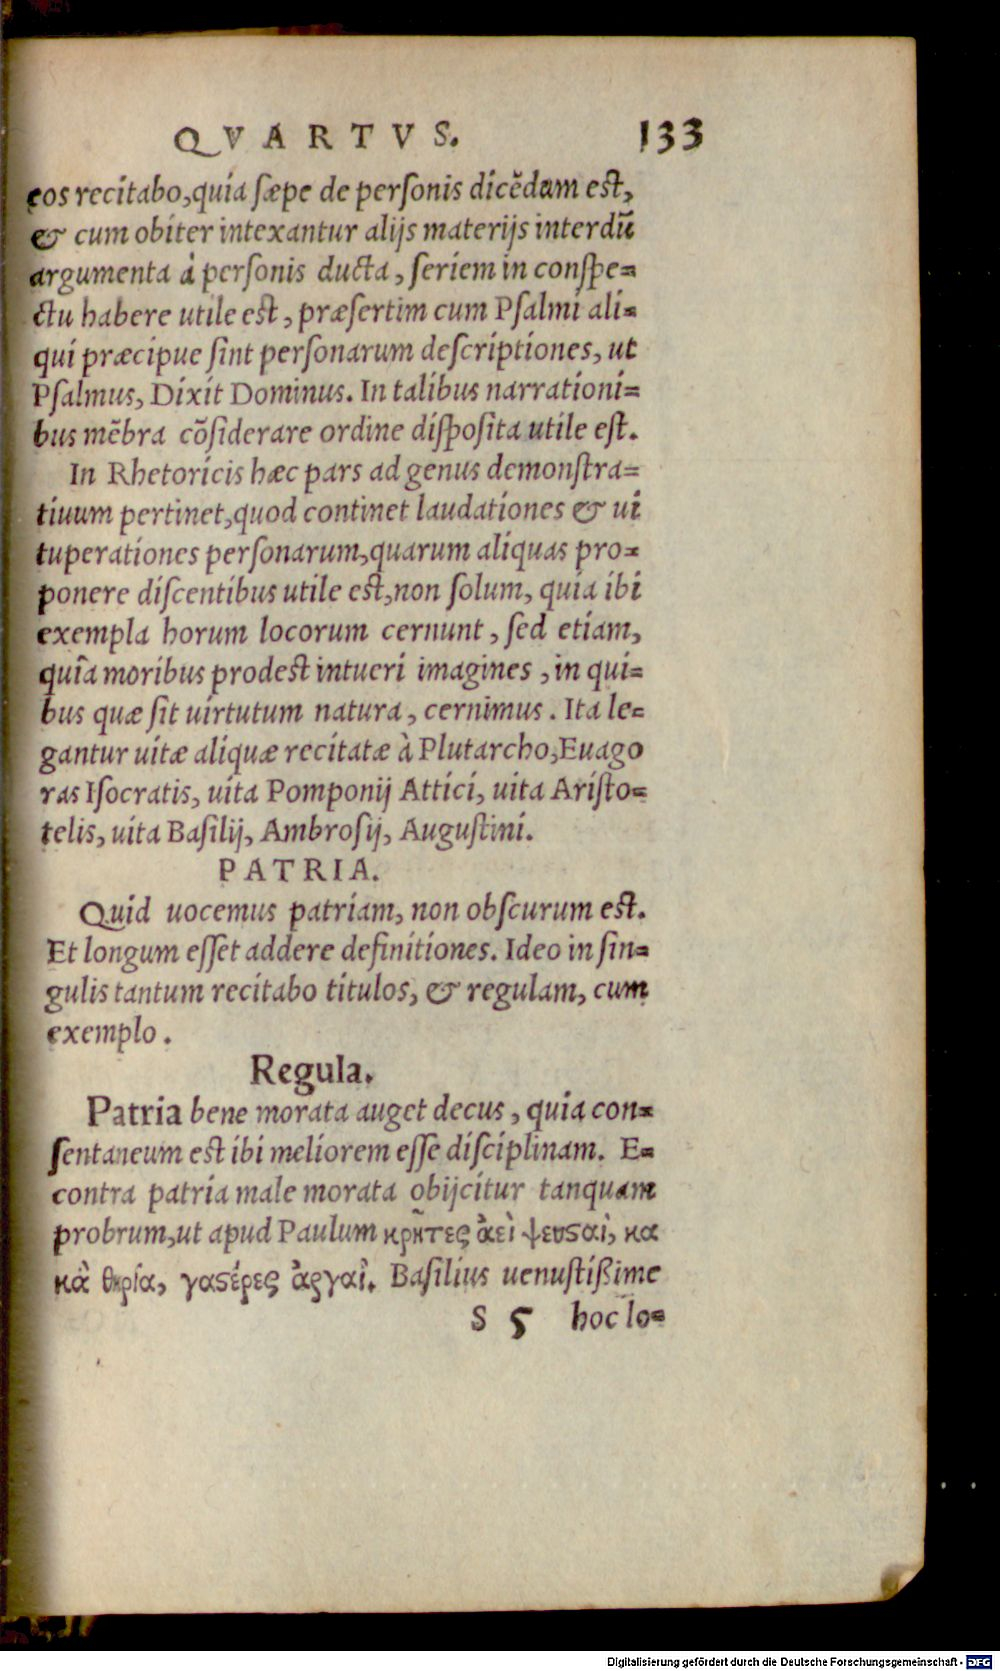 QVARTVS. 133
eos recitabo, quia sæpe de personis dicēdum est,
& cum obiter intexantur alijs materijs interdū
argumenta à personis ducta, seriem in conspe=
ctu habere utile est, præsertim cum Psalmi ali=
qui præcipue sint personarum descriptiones, ut
Psalmus, Dixit Dominus. In talibus narrationi=
bus mēbra cōsiderare ordine disposita utile est.
In Rhetoricis hæc pars ad genus demonstra=
tiuum pertinet, quod continet laudationes & ui
tuperationes personarum, quarum aliquas pro=
ponere discentibus utile est, non solum, quia ibi
exempla horum locorum cernunt, sed etiam,
quia moribus prodest intueri imagines, in qui=
bus quæ sit uirtutum natura, cernimus. Ita le=
gantur uitæ aliquæ recitatæ à Plutarcho, Euago
ras Isocratis, uita Pomponij Attici, uita Aristo=
telis, uita Basilij, Ambrosij, Augustini.
PATRIA.
Quid uocemus patriam, non obscurum est.
Et longum esset addere definitiones. Ideo in sin=
gulis tantum recitabo titulos, & regulam, cum
exemplo.
Regula.
Patria bene morata auget decus, quia con=
sentaneum est ibi meliorem esse disciplinam. E=
contra patria male morata obijcitur tanquam
probrum, ut apud Paulum κρῆτες ἀεὶ ψευσαὶ, κα
κὰ θηρία, γαϛέρες ἀργαὶ. Basilius uenustißime
S 5 hoc lo=
Digitalisierung gefördert durch die Deutsche Forschungsgemeinschaft - DFG